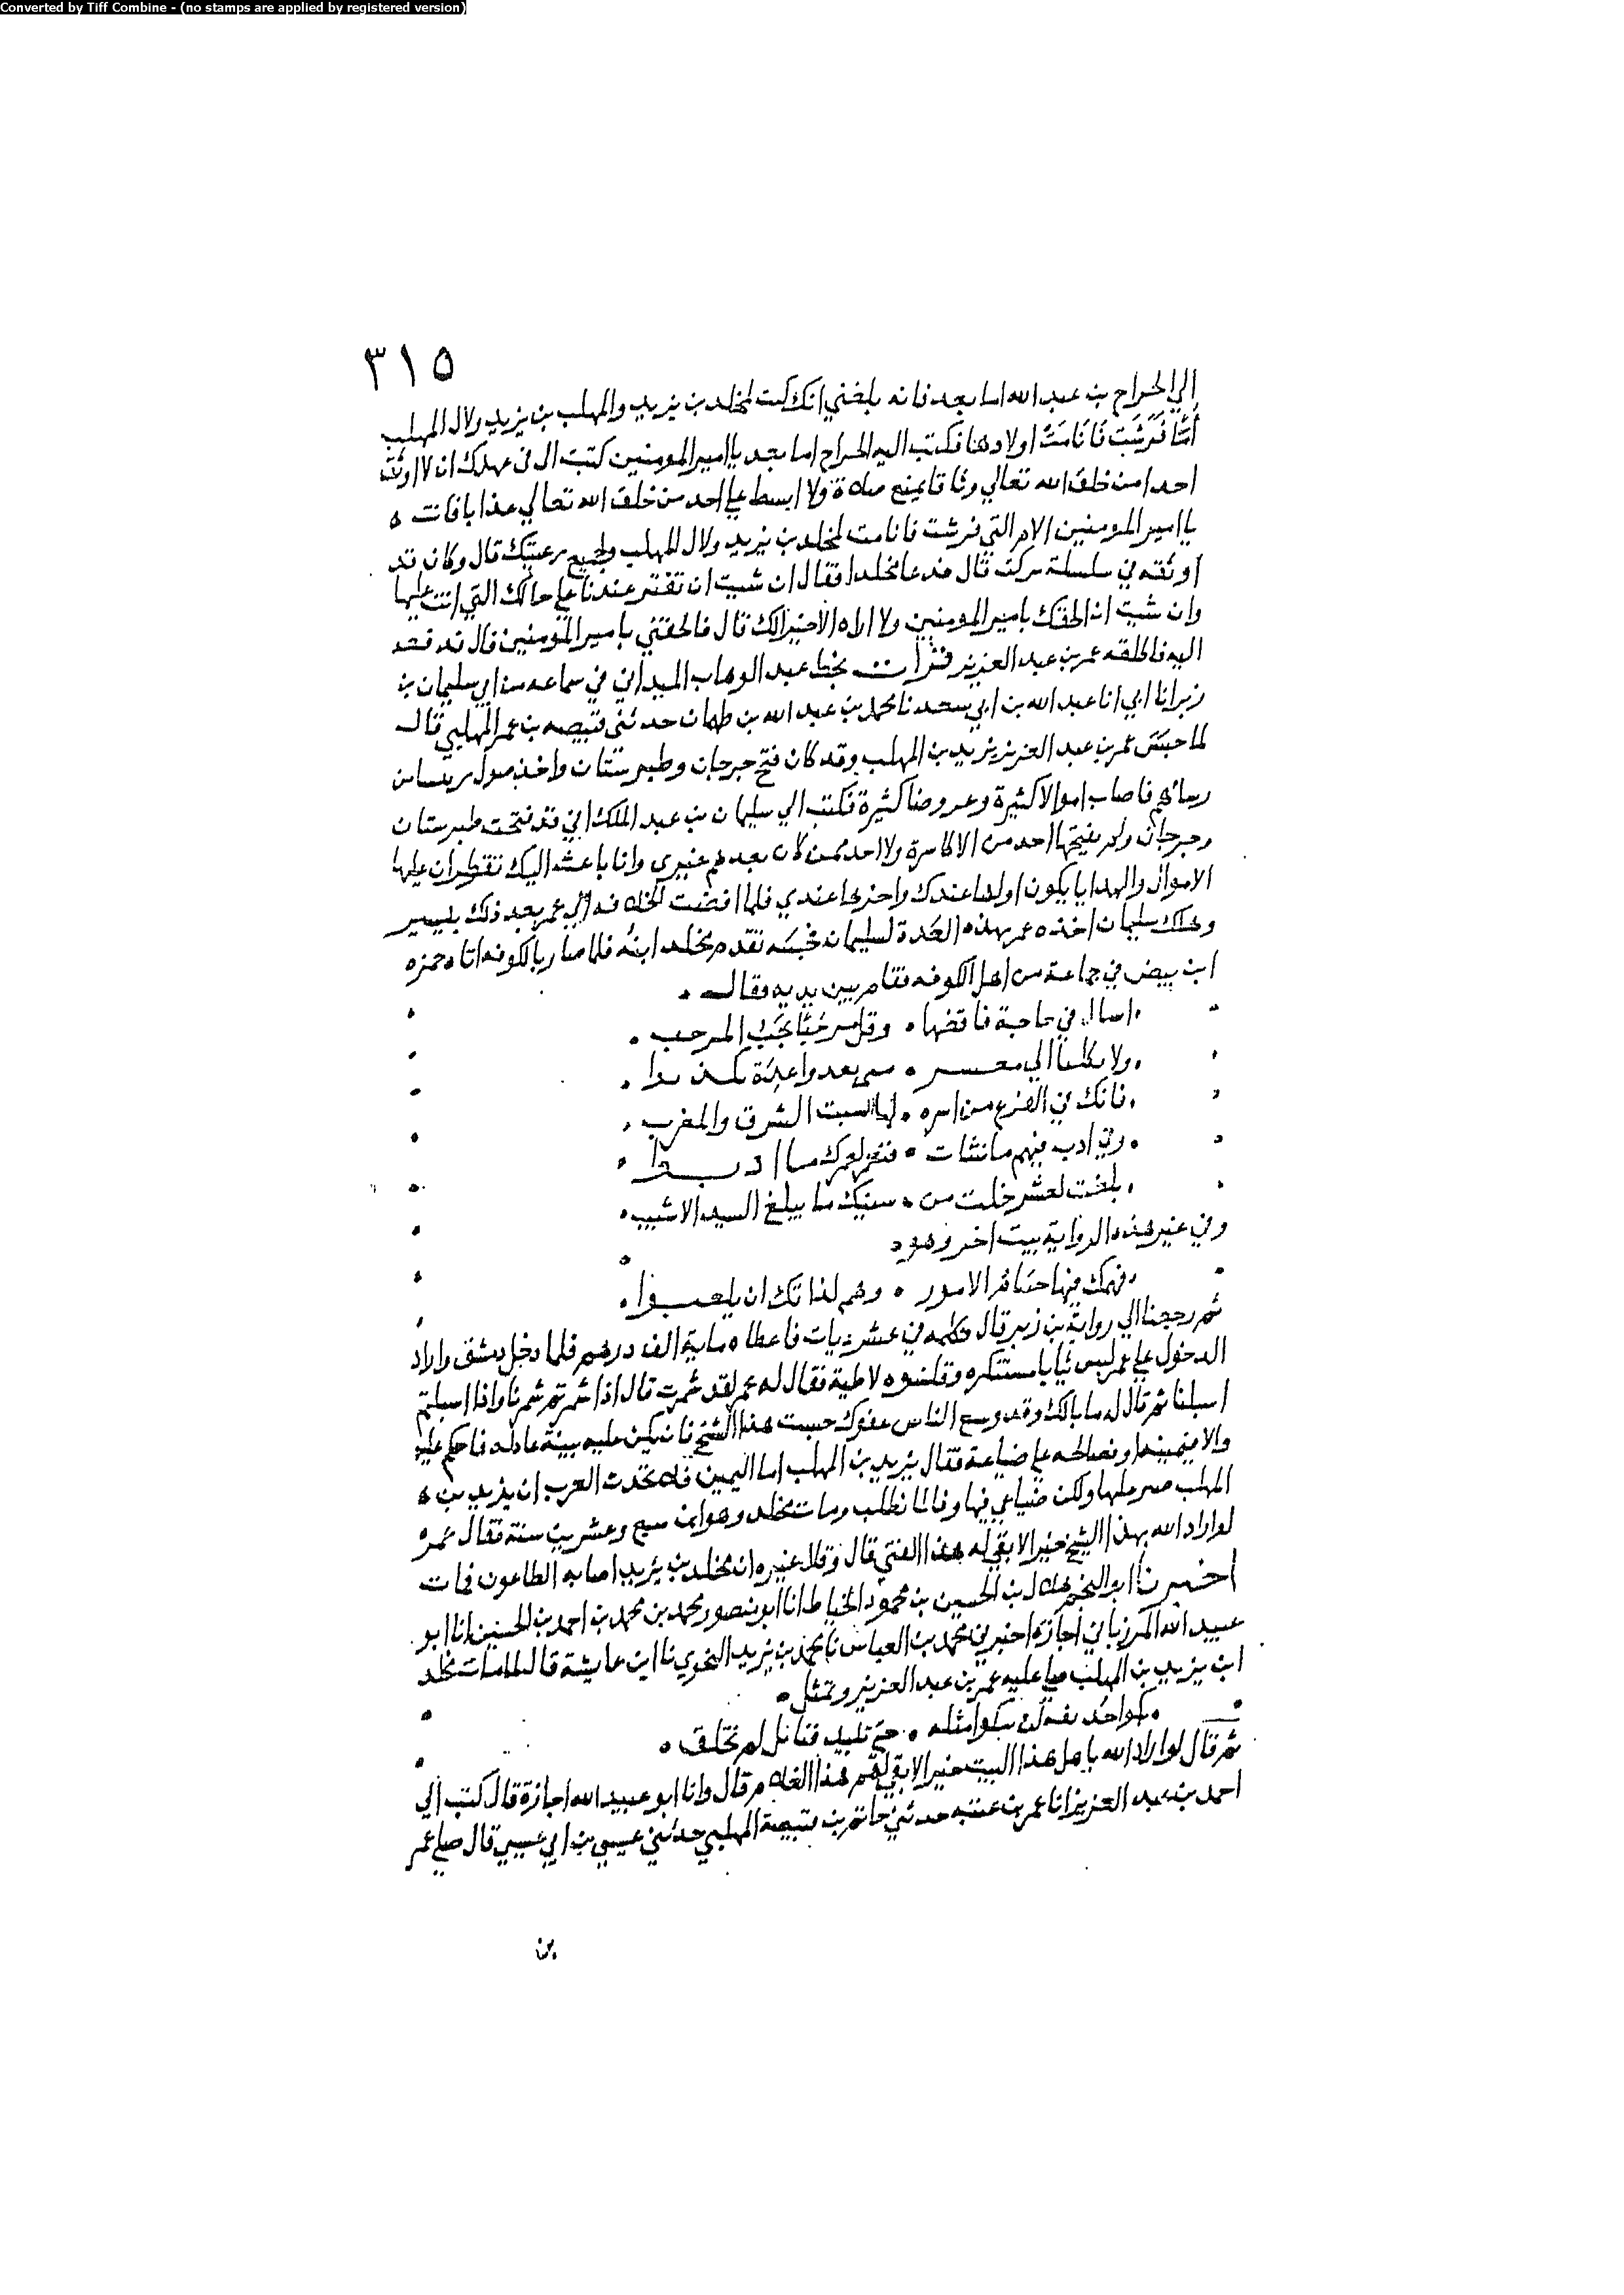 Converted by Tiff Combine - (no stamps are applied by registered version)
٣١٥
الي الجراح بن عبد الله اما بعد فانه بلغني انك كنت لمخلد بن يزيد والمهلب بن يزيد ولال المهلب
أمًّا فَرَشَت فَأنَامَتْ اولادها فكتب اليه الجراح اما بعد يا امير المومنين كتبت الى في عهدك ان لا اوثق
احدا من خلق الله تعالي وثاقا يمنع صلاة ولا ابسط علي احد من خلق الله تعالي عذابا فانت
يا امير المومنين الام التي فرشت فانامت لمخلد بن يزيد ولال المهلب ولجميع رعيتك قال وكان قد
اوثقه في سلسلة قال فدعا مخلدا فقال ان شيت ان تقر عندنا علي حالك التي انت عليها
وان شيت ان الحقك بامير المومنين ولا اراه الا خيرا لك قال فالحقني بامير المومنين قال
اليه فاطلقه عمر بن عبد العزيز قرأت بخط عبد الوهاب الميداني في سماعه من ابي سليمان بن
زبر انا ابي انا عبد الله بن ابي سعد نا محمد بن عبد الله بن طهمان حدثني قبيصه بن عمر المهلبي قال
لما حبس عمر بن عبد العزيز يزيد بن المهلب وقد كان فتح جرجان وطبرستان واخذ صول
رسائهم فاصاب اموالا كثيرة وعروضا كثيرة فكتب الي سليمان بن عبد الملك اني قد فتحت طبرستان
وجرجان ولم يفتحها احد من الاكاسرة ولا احد ممن كان بعدهم غيري وانا باعث اليك بقطران عليها
الاموال والهدايا يكون اولها عندك واخرها عندي فلما افضت الخلافه الي عمر بعد ذلك بيسير
وهلك سليمان اخذه عمر بهذه العدة لسليمان فحبسه فقدم مخلد ابنُه فلما صار بالكوفه اتاه حمزه
ابن بيض في جماعة من اهل الكوفه فقام بين يديه وقال
في حاجة فاقضها وقل مرحبًا يجب المرحب
ولا تكلنا الي معشر متى يعدوا عِدَةً يكذبوا
فانك في الفرع من اسرة لها السبت الشرق والمغرب
وفي ادب فيهم ما نشات فنعم لعمرك ما ادبوا
بلغت لعشر خلت من سنيك ما يبلغ السيد الاشيب
وفي غير هذه الرواية بيت اخر وهو
فهمك فيها جسام الامور وهم لذاتك ان يلعبوا
ثم رجعنا الي رواية بن زبر قال فكلمه في عشر ديات فاعطاه ماية الف درهم فلما دخل دمشق واراد
الدخول علي عمر لبس ثيابا مستنكره وقلنسوه لاطية فقال له عمر لقد شمرت قال اذا شمرتم شمرنا واذا اسبلتم
اسبلنا ثم قال له ما بالك وقد وسع الناس عفوك حبست هذا الشيخ فان يكن عليه بينة عادله فاحكم عليه
والا فيمينه او فصالحه علي ضياعه فقال يزيد بن المهلب اما اليمين فلا تحدث العرب ان يزيد بن
المهلب صبر عليها ولكن ضياعي فيها وفا لما تطلب ومات مخلد وهو ابن سبع وعشرين سنة فقال عمر
لو اراد الله بهذا الشيخ خيرا لابقي له هذا الفتي قال وقال غيره ان مخلد بن يزيد اصابه الطاعون فمات
اخبرنا ابو النجم هلال بن الحسين بن محمود الخياط انا ابو منصور محمد بن محمد بن احمد بن الحسين انا ابو
عبيد الله المرزباني اجازة اخبرني محمد بن العباس نا محمد بن يزيد النحوي نا ابن عايشة قال لما مات مخلد
ابن يزيد بن المهلب صلي عليه عمر بن عبد العزيز وتمثل
لن يبكوا مثله حتي تبيد قبائل لم تخلق
ثم قال لو اراد الله باهل هذا البيت خيرا لابقي لهم هذا الغلام قال وانا ابو عبيد الله اجازة قال كتب الي
احمد بن عبد العزيز انا عمر بن حدثني حاتم بن قبيصة المهلبي حدثني عيسي بن ابي عيسي قال صلي عمر
بن